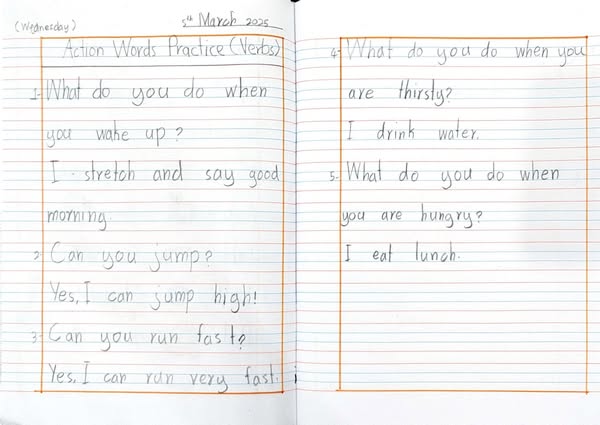 (Wednesday) 5th March 2025
Action Words Practice (Verbs)
1- What do you do when
you wake up?
I stretch and say good
morning.
2- Can you jump?
Yes, I can jump high!
3- Can you run fast?
Yes, I can run very fast.
4- What do you do when you
are thirsty?
I drink water.
5- What do you do when
you are hungry?
I eat lunch.